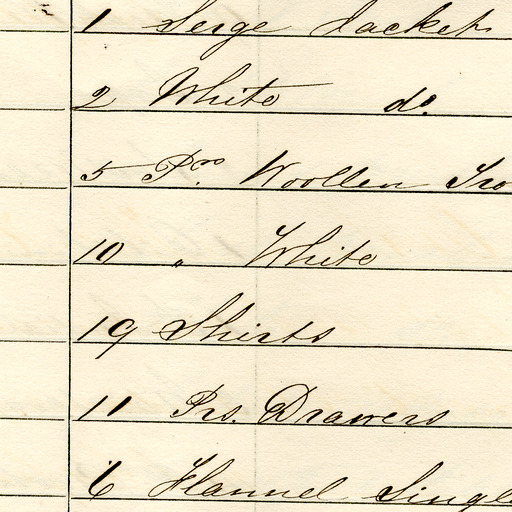 1 Serge Jackets
2 White do.
5 Prs. Woollen Tro
10 " White
19 Shirts
11 Prs. Drawers
6 Flannel Singl